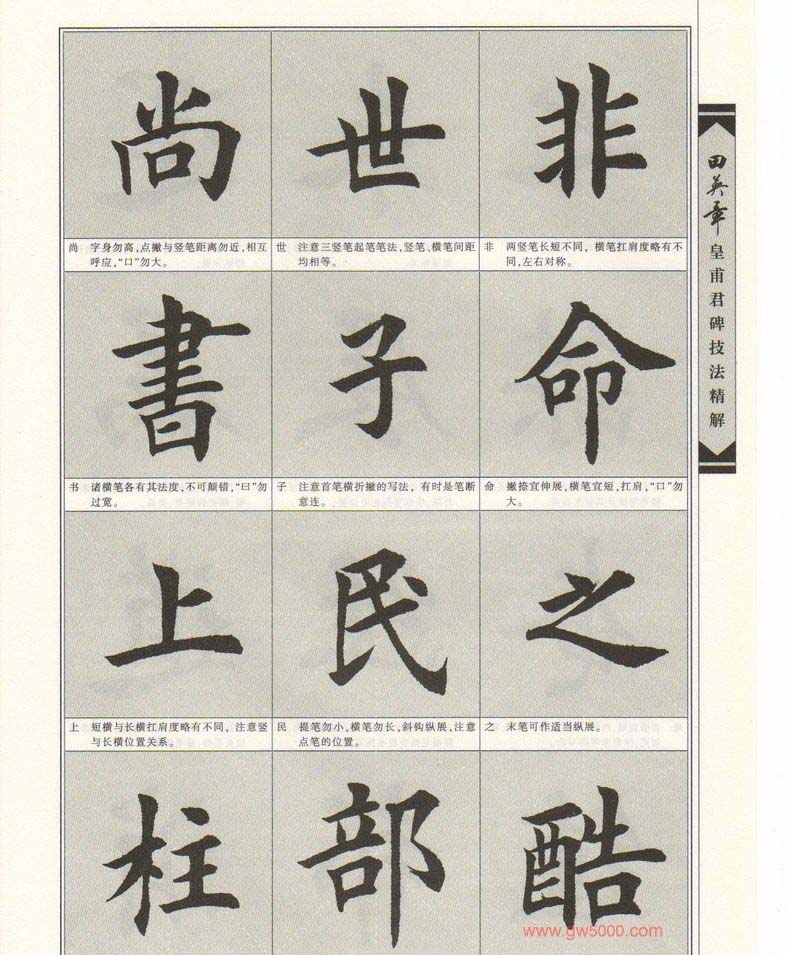 尚 世 非
尚 字身勿高,点撇与竖笔距离勿近,相互
呼应,“口”勿大。
世 注意三竖笔起笔笔法,竖笔、横笔间距
均相等。
非 两竖笔长短不同,横笔扛肩度略有不
同,左右对称。
書 子 命
书 诸横笔各有其法度,不可颠错,“曰”勿
过宽。
子 注意首笔横折撇的写法,有时是笔断
意连。
命 撇捺宜伸展,横笔宜短,扛肩,“口”勿
大。
上 民 之
上 短横与长横扛肩度略有不同,注意竖
与长横位置关系。
民 提笔勿小,横笔勿长,斜钩纵展,注意
点笔的位置。
之 末笔可作适当纵展。
柱 部 酷
田英章
皇甫君碑技法精解
www.gw5000.com